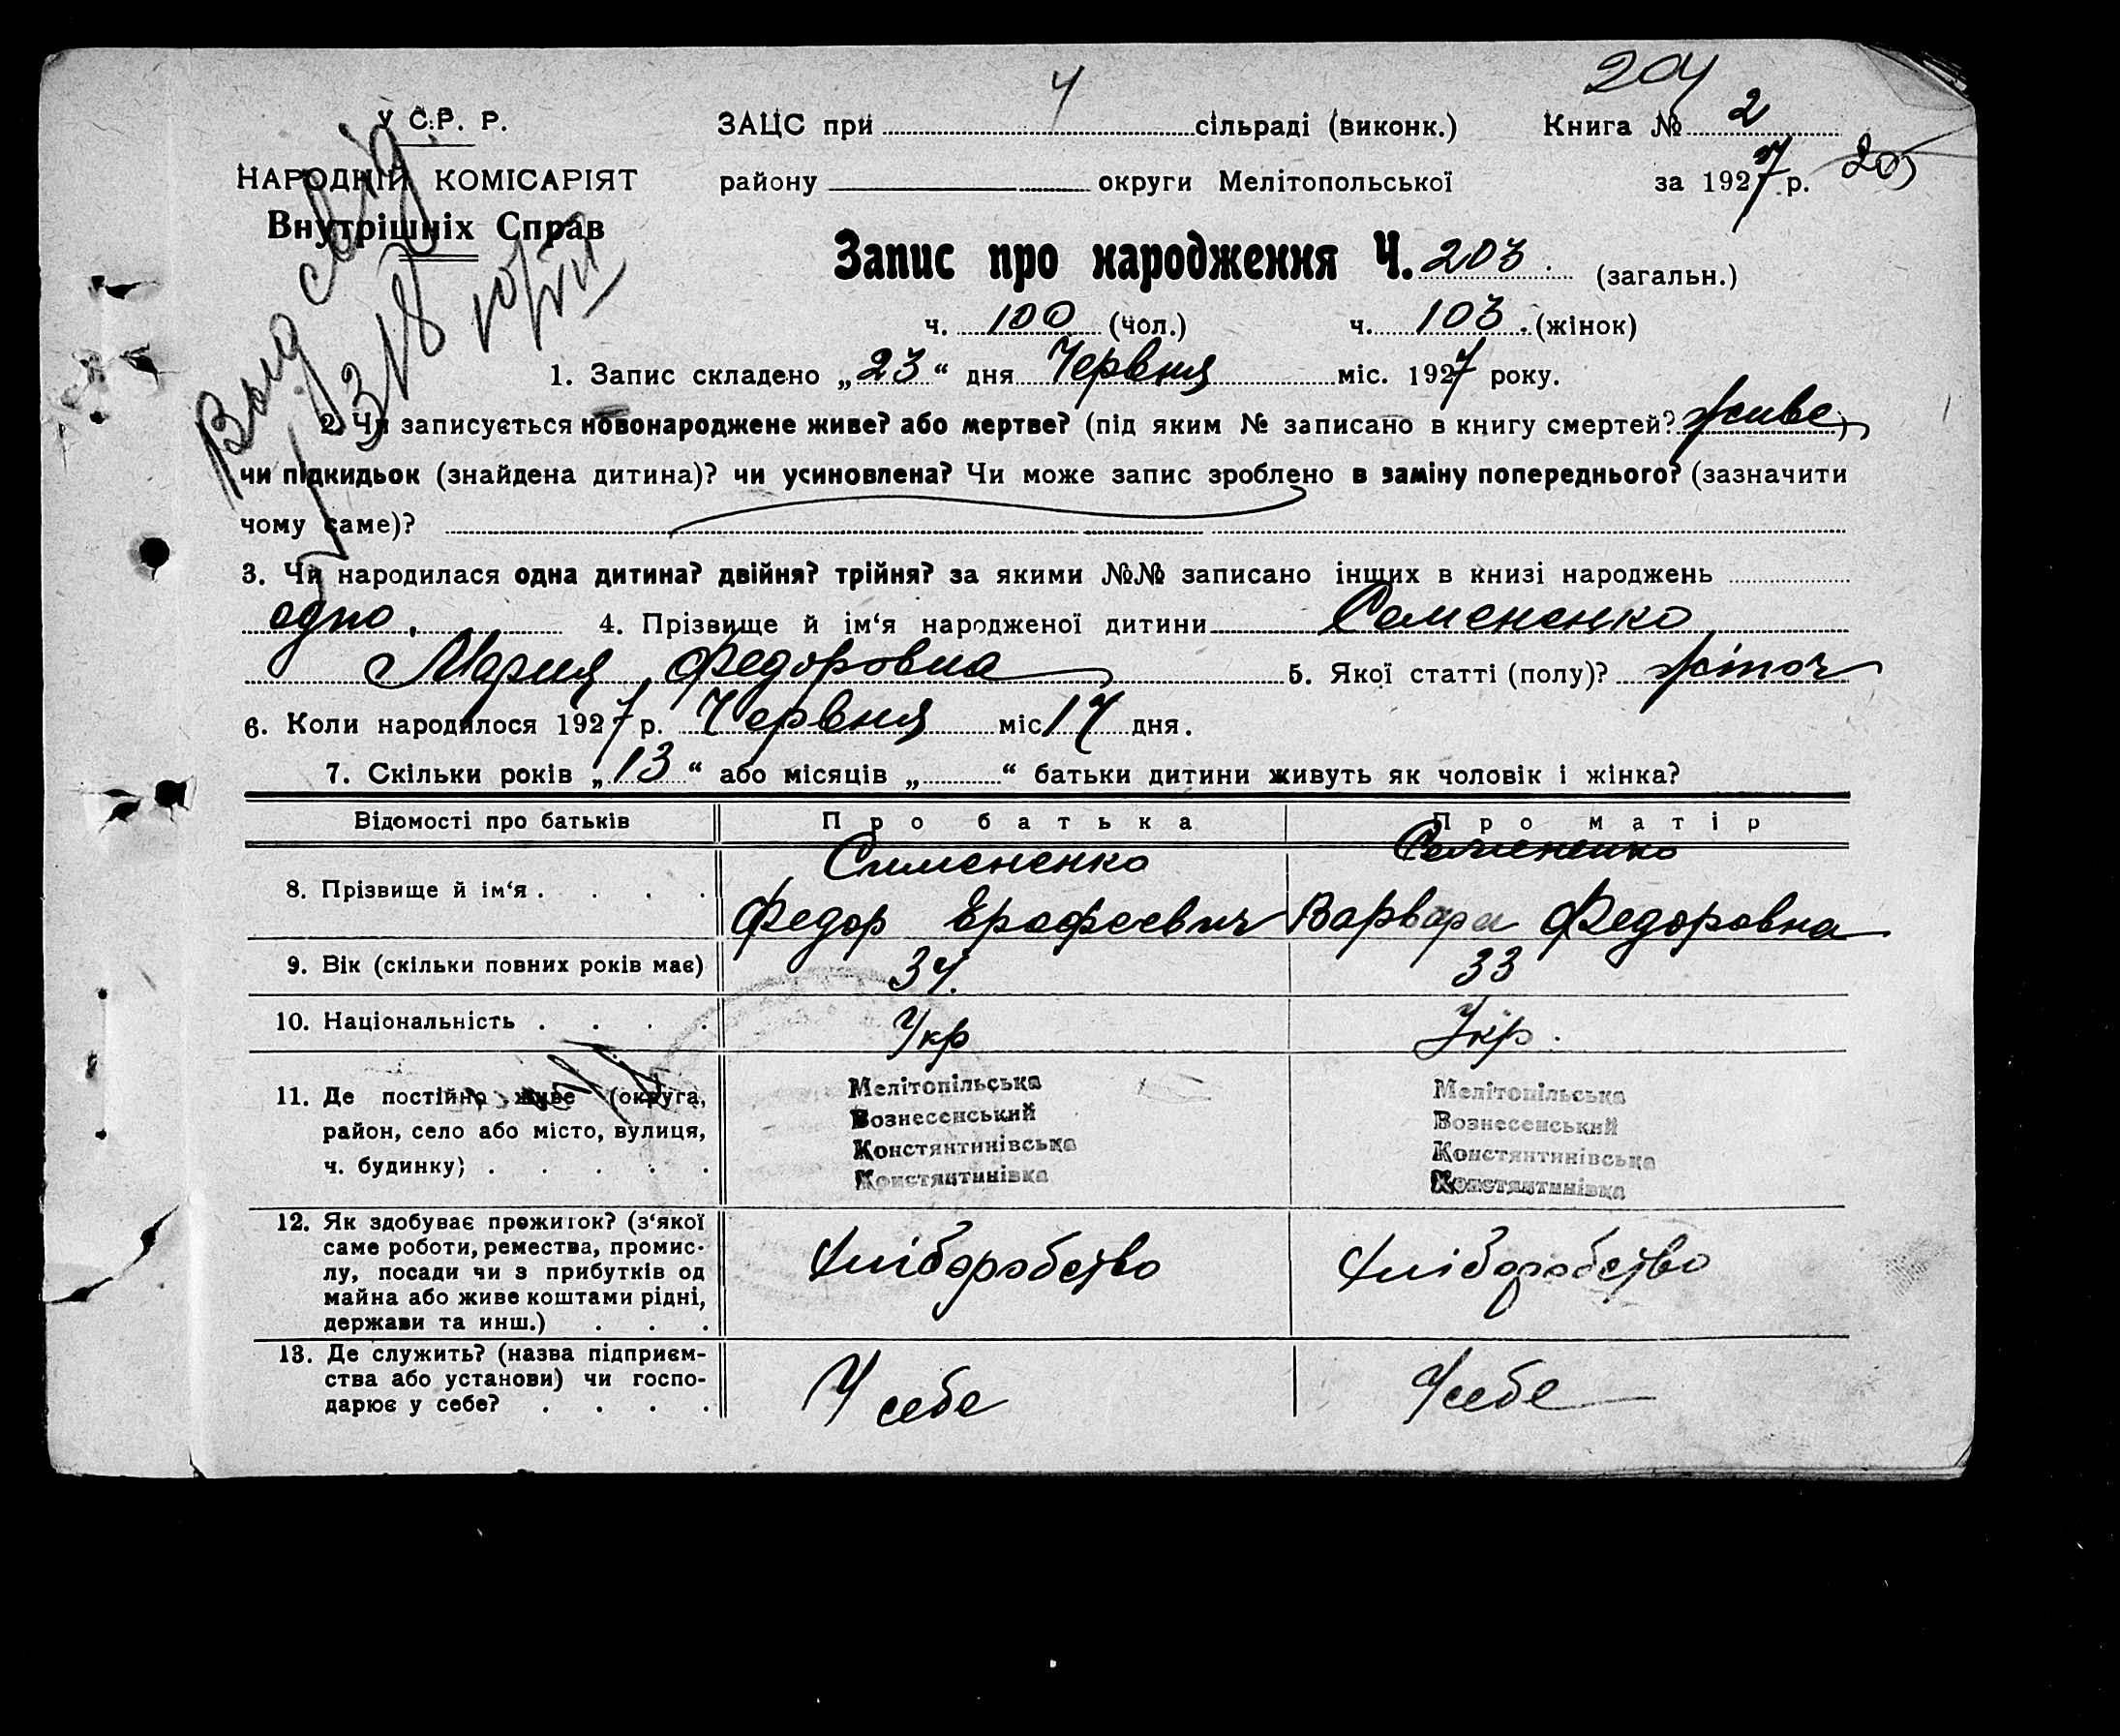 204
У С.Р. Р.
ЗАЦС при 4 сільраді (виконк.) Книга № 2
НАРОДНІЙ КОМІСАРІЯТ
району округи Мелітопольської за 1927 р. 205
Внутрішніх Справ
Запис про народження Ч. 203. (загальн.)
ч. 100 (чол.) ч. 103. (жінок)
1. Запис складено „23“ дня Червня міс. 1927 року.
2. Чи записується новонароджене живе? або мертве? (під яким № записано в книгу смертей? живе)
чи підкидьок (знайдена дитина)? чи усиновлена? Чи може запис зроблено в заміну попереднього? (зазначити
чому саме)?
3. Чи народилася одна дитина? двійня? трійня? за якими №№ записано інщих в книзі народжень
одно. 4. Прізвище й ім‘я народженої дитини Семененко
Мария Федоровна 5. Якої статті (полу)? жіноч
6. Коли народилося 1927 р. Червня міс 17 дня.
7. Скільки років „13“ або місяців „ “ батьки дитини живуть як чоловік і жінка?
Відомості про батьків Про батька Про матір
8. Прізвище й ім‘я . . . . Семененко Семененко
Федор Ерофеевич Варвара Федоровна
9. Вік (скільки повних років має) 34. 33
10. Національність . . . . Укр Укр.
11. Де постійно живе (округа, район, село або місто, вулиця, ч. будинку) . . . . .
Мелітопільська Мелітопільська
Вознесенський Вознесенський
Констянтинівська Констянтинівська
Констянтинівка Констянтинівка
12. Як здобуває прожиток? (з‘якої
саме роботи, ремества, промис-
лу, посади чи з прибутків од
майна або живе коштами рідні,
держави та инш.) . . .
Хліборобство Хліборобство
13. Де служить? (назва підприєм-
ства або установи) чи госпо-
дарює у себе? . . . .
У себе У себе